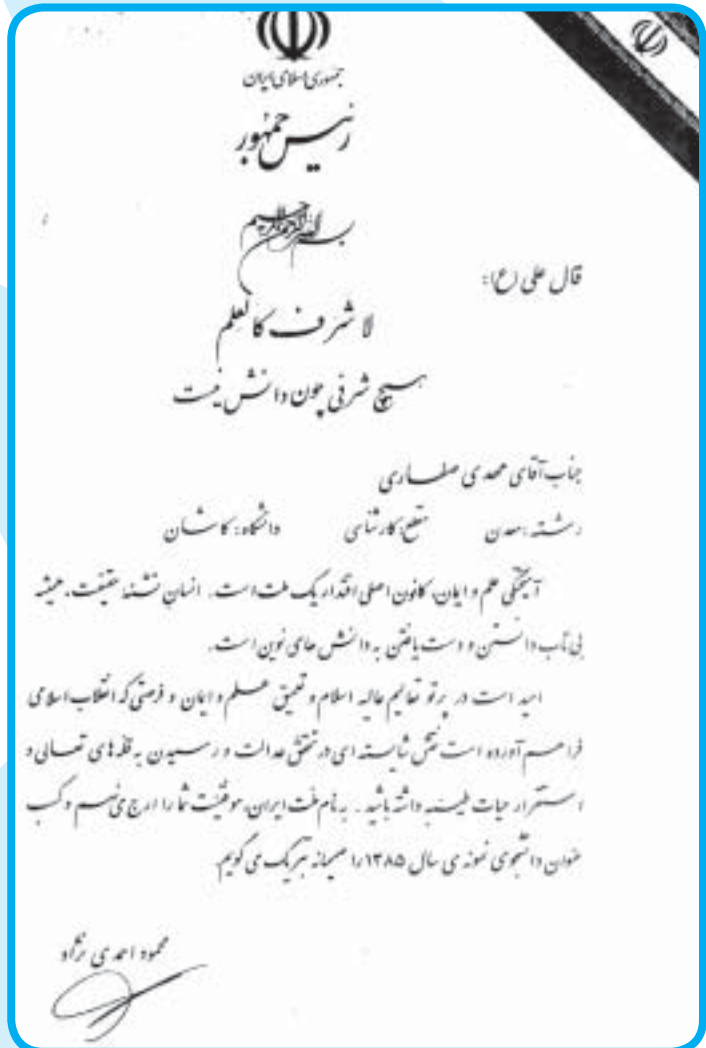 جمهوری اسلامی ایران
رئیس جمهور
بسم الله الرحمن الرحیم
قال علی (ع):
لا شرف کالعلم
هیچ شرفی چون دانش نیست
جناب آقای مهدی صفاری
رشته: معدن مقطع: کارشناسی دانشگاه: کاشان
آمیختگی علم و ایمان، کانون اصلی اقتدار یک ملت است. انسان تشنه حقیقت، همیشه
بی تاب دانستن و دست یافتن به دانش های نوین است.
امید است در پرتو تعالیم عالیه اسلام و تعمیق علم و ایمان و فرصتی که انقلاب اسلامی
فراهم آورده است نقش شایسته ای در تحقق عدالت و رسیدن به قله های تعالی و
استقرار حیات طیبه داشته باشید. به نام ملت ایران، موفقیت شما را ارج می نهم و کسب
عنوان دانشجوی نمونه ی سال ۱۳۸۵ را صمیمانه تبریک می گویم
محمود احمدی نژاد